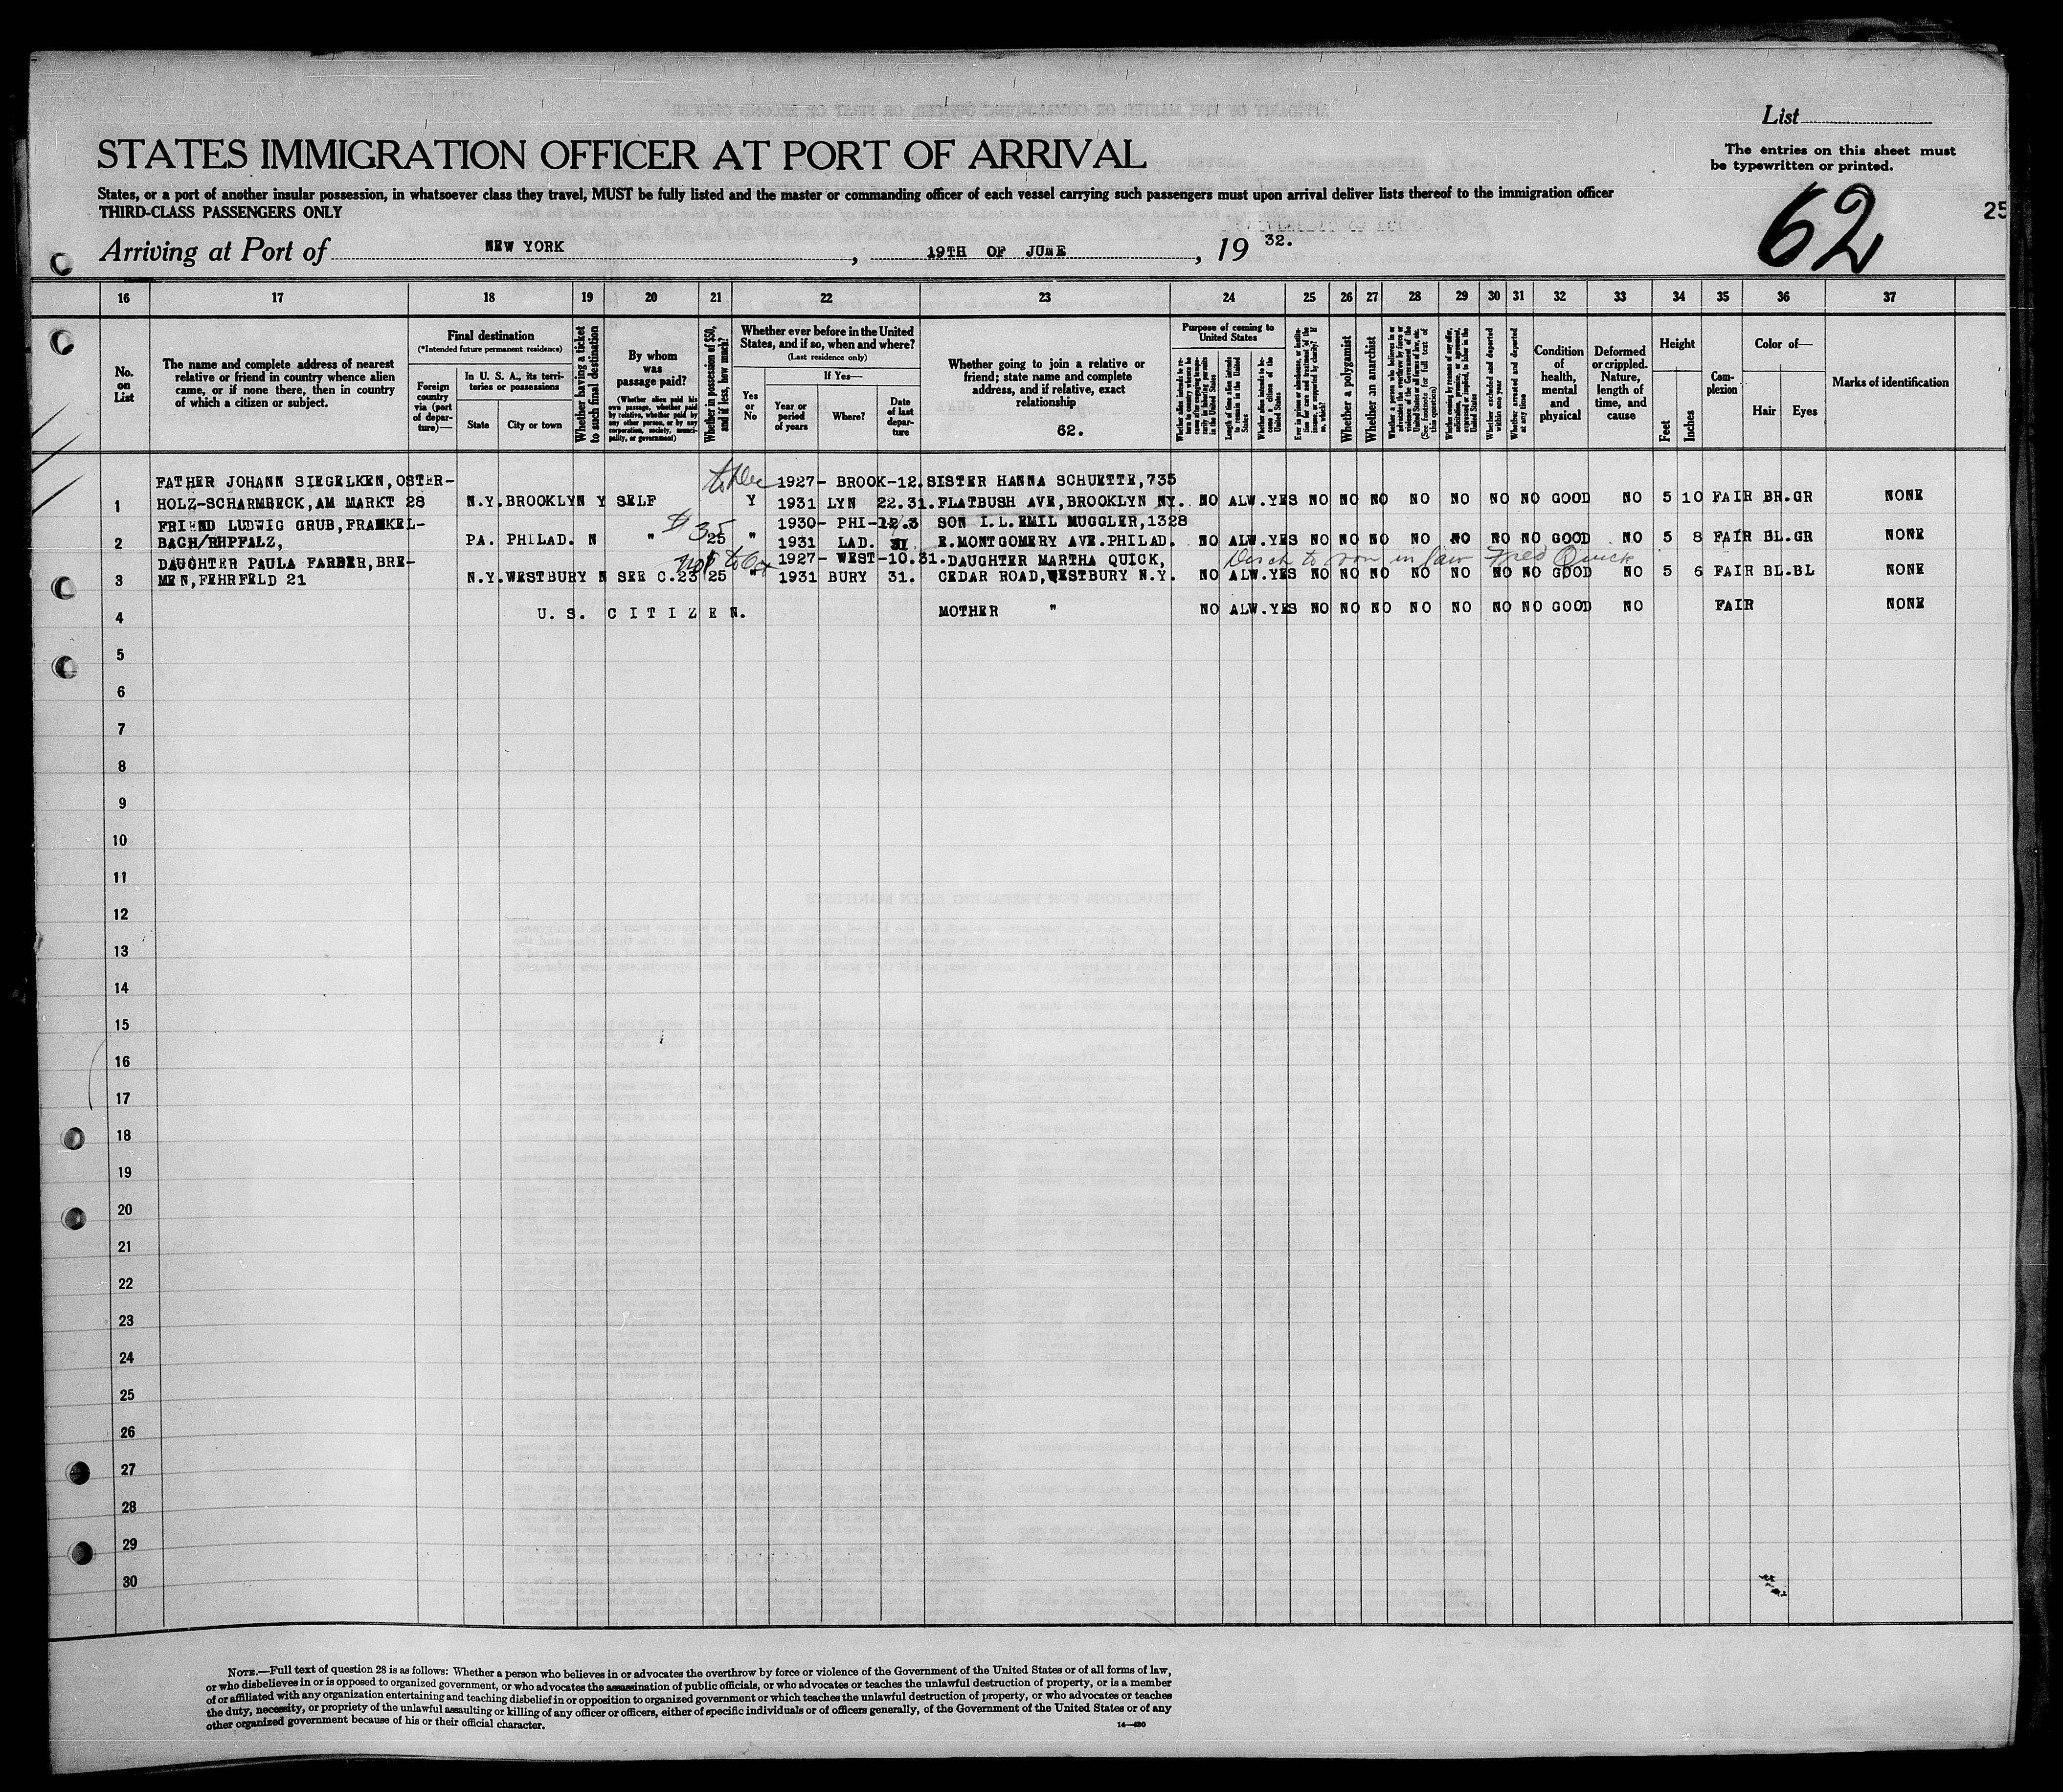 List
STATES IMMIGRATION OFFICER AT PORT OF ARRIVAL
The entries on this sheet must
be typewritten or printed.
States, or a port of another insular possession, in whatsoever class they travel, MUST be fully listed and the master or commanding officer of each vessel carrying such passengers must upon arrival deliver lists thereof to the immigration officer
THIRD-CLASS PASSENGERS ONLY
62
25
Arriving at Port of NEW YORK, 19TH OF JUNE, 19 32.
16 17 18 19 20 21 22 23 24 25 26 27 28 29 30 31 32 33 34 35 36 37
No.
on
List
The name and complete address of nearest
relative or friend in country whence alien
came, or if none there, then in country
of which a citizen or subject.
Final destination
(*Intended future permanent residence)
Foreign
country
via (port
of depar-
ture)—
In U. S. A., its terri-
tories or possessions
State
City or town
Whether having a ticket
to such final destination
By whom
was
passage paid?
(Whether alien paid his
own passage, whether paid
by relative, whether paid by
any other person, or by any
corporation, society, munici-
pality, or government)
Whether in possession of $50,
and if less, how much?
Whether ever before in the United
States, and if so, when and where?
(Last residence only)
Yes
or
No
If Yes—
Year or
period
of years
Where?
Date
of last
depar-
ture
Whether going to join a relative or
friend; state name and complete
address, and if relative, exact
relationship
62.
Purpose of coming to
United States
Length of time alien intends
to remain in the United
States
Whether alien intends to be-
come a citizen of the
United States
Whether a polygamist
Whether an anarchist
(See footnote for full text of
this question)
Whether excluded and deported
within one year
Whether arrested and deported
at any time
Condition
of
health,
mental
and
physical
Deformed
or crippled.
Nature,
length of
time, and
cause
Height
Feet
Inches
Com-
plexion
Color of—
Hair
Eyes
Marks of identification
FATHER JOHANN SIEGELKEN,OSTER- 1927- BROOK-12. SISTER HANNA SCHUETTE,735
1 HOLZ-SCHARMBECK,AM MARKT 28 N.Y. BROOKLYN Y SELF Y 1931 LYN 22.31. FLATBUSH AVE,BROOKLYN NY. NO ALW. YES NO NO NO NO NO NO NO GOOD NO 5 10 FAIR BR. GR NONE
FRIEND LUDWIG GRUB,FRANKEL- $35 1930- PHI- 12.3 SON I.L.EMIL MUGGLER,1328
2 BACH/RHPFALZ, PA. PHILAD. N " 25 " 1931 LAD. 31 E.MONTGOMERY AVE.PHILAD. NO ALW. YES NO NO NO NO NO NO NO GOOD NO 5 8 FAIR BL. GR NONE
DAUGHTER PAULA FARBER,BRE- 1927- WEST-10.31. DAUGHTER MARTHA QUICK, Disch to son in law Fred Quick
3 MEN,FEHRFELD 21 N.Y. WESTBURY N SEE C.23 25 " 1931 BURY 31. CEDAR ROAD,WESTBURY N.Y. NO ALW. YES NO NO NO NO NO NO NO GOOD NO 5 6 FAIR BL. BL NONE
4 U. S. CITIZEN. MOTHER " NO ALW. YES NO NO NO NO NO NO NO GOOD NO FAIR NONE
5
6
7
8
9
10
11
12
13
14
15
16
17
18
19
20
21
22
23
24
25
26
27
28
29
30
NOTE.—Full text of question 28 is as follows: Whether a person who believes in or advocates the overthrow by force or violence of the Government of the United States or of all forms of law,
or who disbelieves in or is opposed to organized government, or who advocates the assassination of public officials, or who advocates or teaches the unlawful destruction of property, or is a member
of or affiliated with any organization entertaining and teaching disbelief in or opposition to organized government or which teaches the unlawful destruction of property, or who advocates or teaches
the duty, necessity, or propriety of the unlawful assaulting or killing of any officer or officers, either of specific individuals or of officers generally, of the Government of the United States or of any
other organized government because of his or their official character.
14—430